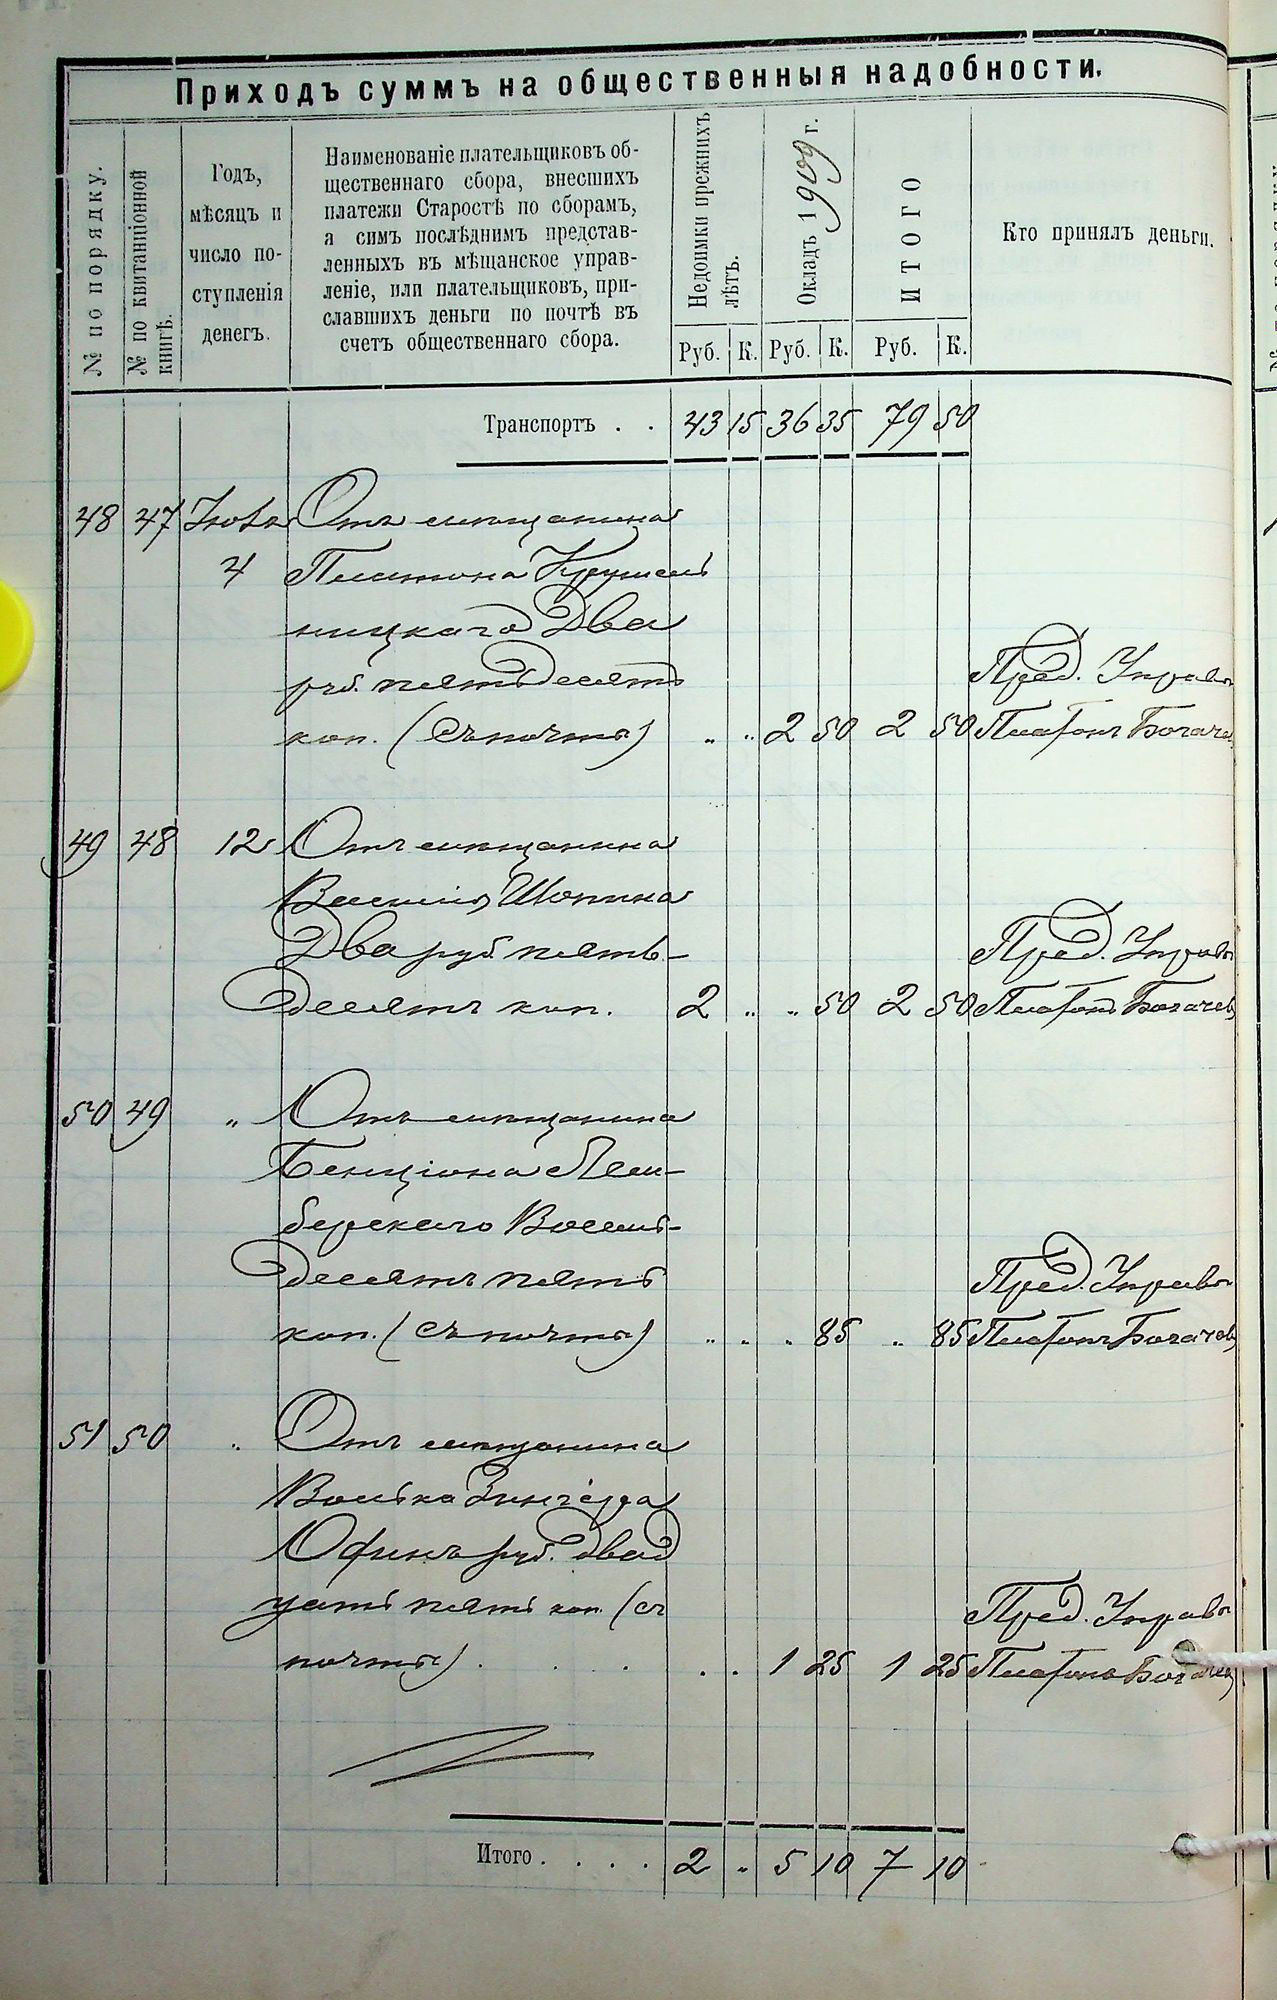 Приходъ суммъ на общественныя надобности.
№ по порядку.
№ по квитанціонной книгѣ.
Годъ,
мѣсяцъ и
число по-
ступленія
денегъ.
Наименованіе плательщиковъ об-
щественнаго сбора, внесшихъ
платежи Старостѣ по сборамъ,
а симъ послѣднимъ представ-
ленныхъ въ мѣщанское управ-
леніе, или плательщиковъ, при-
славшихъ деньги по почтѣ въ
счетъ общественнаго сбора.
Недоимки прежнихъ
лѣтъ.
Окладъ 1909 г.
ИТОГО
Кто принялъ деньги.
Руб. К. Руб. К. Руб. К.
Транспортъ . . 43 15 36 35 79 50
48 47 Отъ мѣщанина
4 Платона Крушель
ницкаго Два
руб. пятьдесятъ
Пред. Управы
коп. (съ почты) " " 2 50 2 50 Платонъ Богачевъ
49 48 12 Отъ мѣщанина
Василія Шопина
Два руб пять-
Пред. Управы
десятъ коп. 2 " " 50 2 50 Платонъ Богачевъ
50 49 " Отъ мѣщанина
Бенціона Лем-
берскаго Восемь-
десятъ пять
Пред. Управы
коп. (съ почты) " " " 85 " 85 Платонъ Богачевъ
51 50 " Отъ мѣщанина
Волька Зингера
Одинъ руб. двад
цать пять коп. (съ
Пред. Управы
почты) . . . . . 1 25 1 25 Платонъ Богачевъ
Итого . . . . 2 " 5 10 7 10